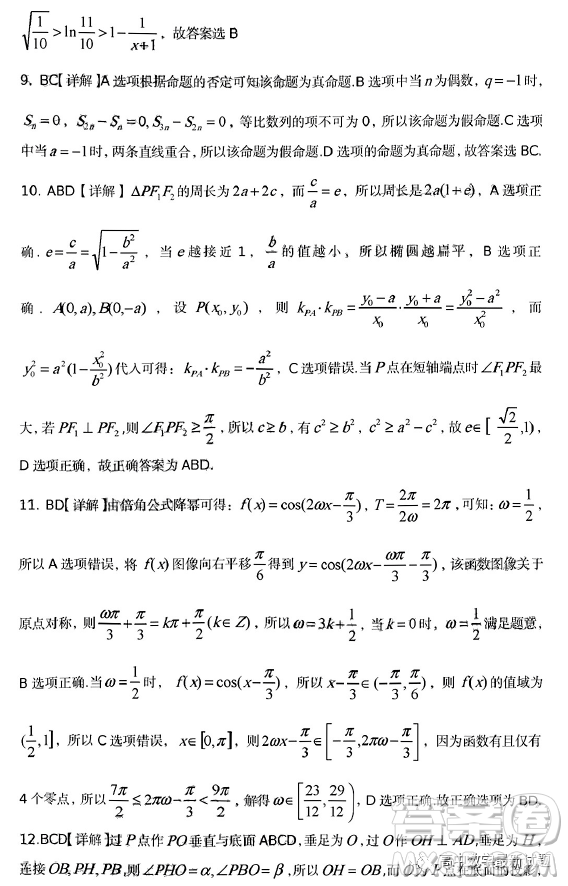 √(1/10) > ln 11/10 > 1 − 1/(x+1)，故答案选 B
9、BC【详解】A 选项根据命题的否定可知该命题为真命题.B 选项中当 n 为偶数，q = −1 时，
Sₙ = 0，S₂ₙ − Sₙ = 0, S₃ₙ − S₂ₙ = 0，等比数列的项不可为 0，所以该命题为假命题.C 选项
中当 a = −1 时，两条直线重合，所以该命题为假命题.D 选项的命题为真命题，故答案选 BC.
10. ABD【详解】△PF₁F₂ 的周长为 2a + 2c，而 c/a = e，所以周长是 2a(1+e)，A 选项正
确．e = c/a = √(1 − b²/a²)，当 e 越接近 1，b/a 的值越小，所以椭圆越扁平，B 选项正
确．A(0,a), B(0,−a)，设 P(x₀, y₀)，则 k_PA · k_PB = (y₀ − a)/x₀ · (y₀ + a)/x₀ = (y₀² − a²)/x₀²，而
y₀² = a²(1 − x₀²/b²) 代入可得：k_PA · k_PB = −a²/b²，C 选项错误.当 P 点在短轴端点时 ∠F₁PF₂ 最
大，若 PF₁ ⊥ PF₂,则 ∠F₁PF₂ ≥ π/2，所以 c ≥ b，有 c² ≥ b²，c² ≥ a² − c²，故 e∈[√2/2,1)，
D 选项正确，故正确答案为 ABD.
11. BD【详解】由倍角公式降幂可得：f(x) = cos(2ωx − π/3)，T = 2π/2ω = 2π，可知：ω = 1/2，
所以 A 选项错误，将 f(x) 图像向右平移 π/6 得到 y = cos(2ωx − ωπ/3 − π/3)，该函数图像关于
原点对称，则 ωπ/3 + π/3 = kπ + π/2 (k∈Z)，所以 ω = 3k + 1/2，当 k = 0 时，ω = 1/2 满足题意，
B 选项正确.当 ω = 1/2 时，f(x) = cos(x − π/3)，所以 x − π/3 ∈ (−π/3, π/3)，则 f(x) 的值域为
(1/2,1]，所以 C 选项错误，x∈[0,π]，则 2ωx − π/3 ∈ [−π/3, 2πω − π/3]，因为函数有且仅有
4 个零点，所以 7π/2 ≤ 2πω − π/3 < 9π/2，解得 ω∈[23/12, 29/12)，D 选项正确.故正确选项为 BD.
12.BCD【详解】过 P 点作 PO 垂直与底面 ABCD, 垂足为 O，过 O 作 OH ⊥ AD,垂足为 H,
连接 OB, PH, PB, 则 ∠PHO = α，∠PBO = β，所以 OH = OB，